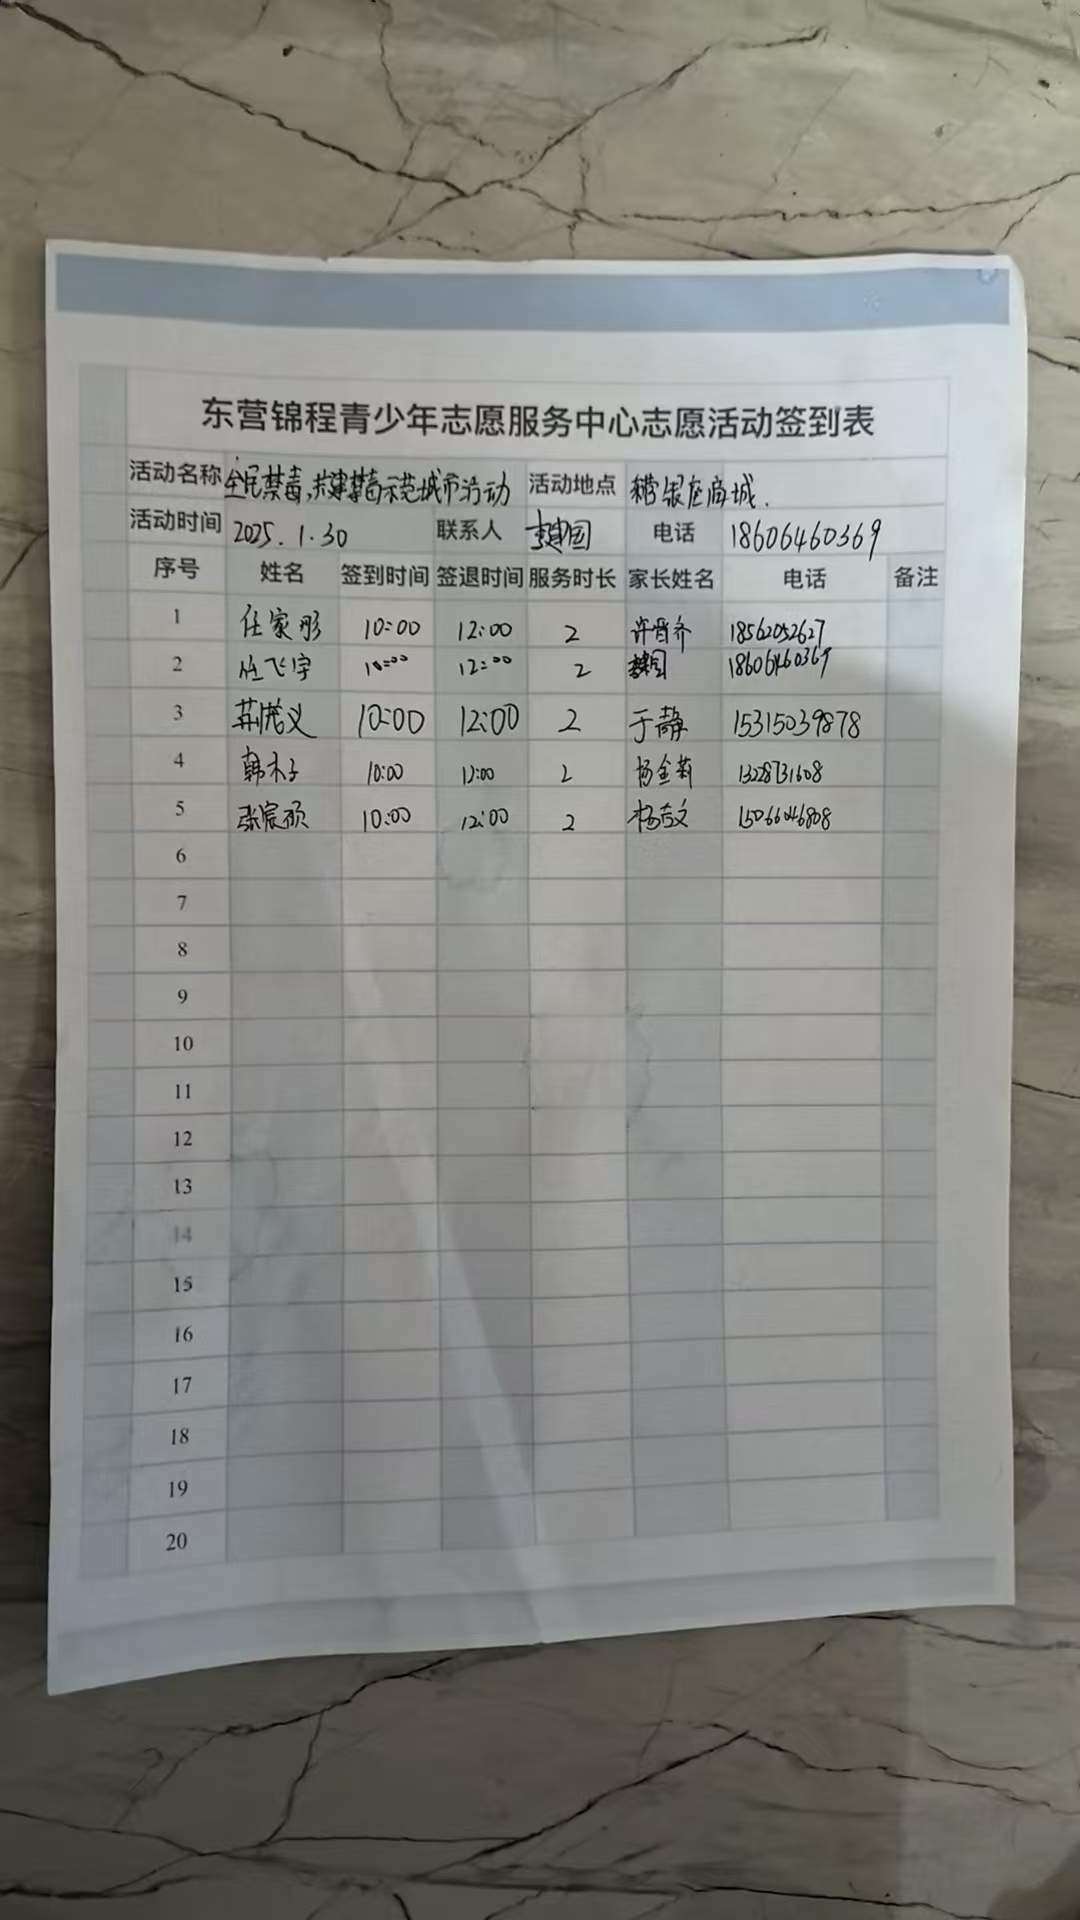 东营锦程青少年志愿服务中心志愿活动签到表
活动名称 全民禁毒,共建禁毒示范城市活动 活动地点 银座商城.
活动时间 2025.1.30 联系人 李建国 电话 18606460369
序号 姓名 签到时间 签退时间 服务时长 家长姓名 电话 备注
1 任家彤 10:00 12:00 2 许晋齐 18562052627
2 丛飞宇 10:00 12:00 2 18606460369
3 荆茂义 10:00 12:00 2 于静 15315039878
4 韩木子 10:00 12:00 2 杨金莉
5 张宸硕 10:00 12:00 2 杨志文 15066046808
6
7
8
9
10
11
12
13
14
15
16
17
18
19
20